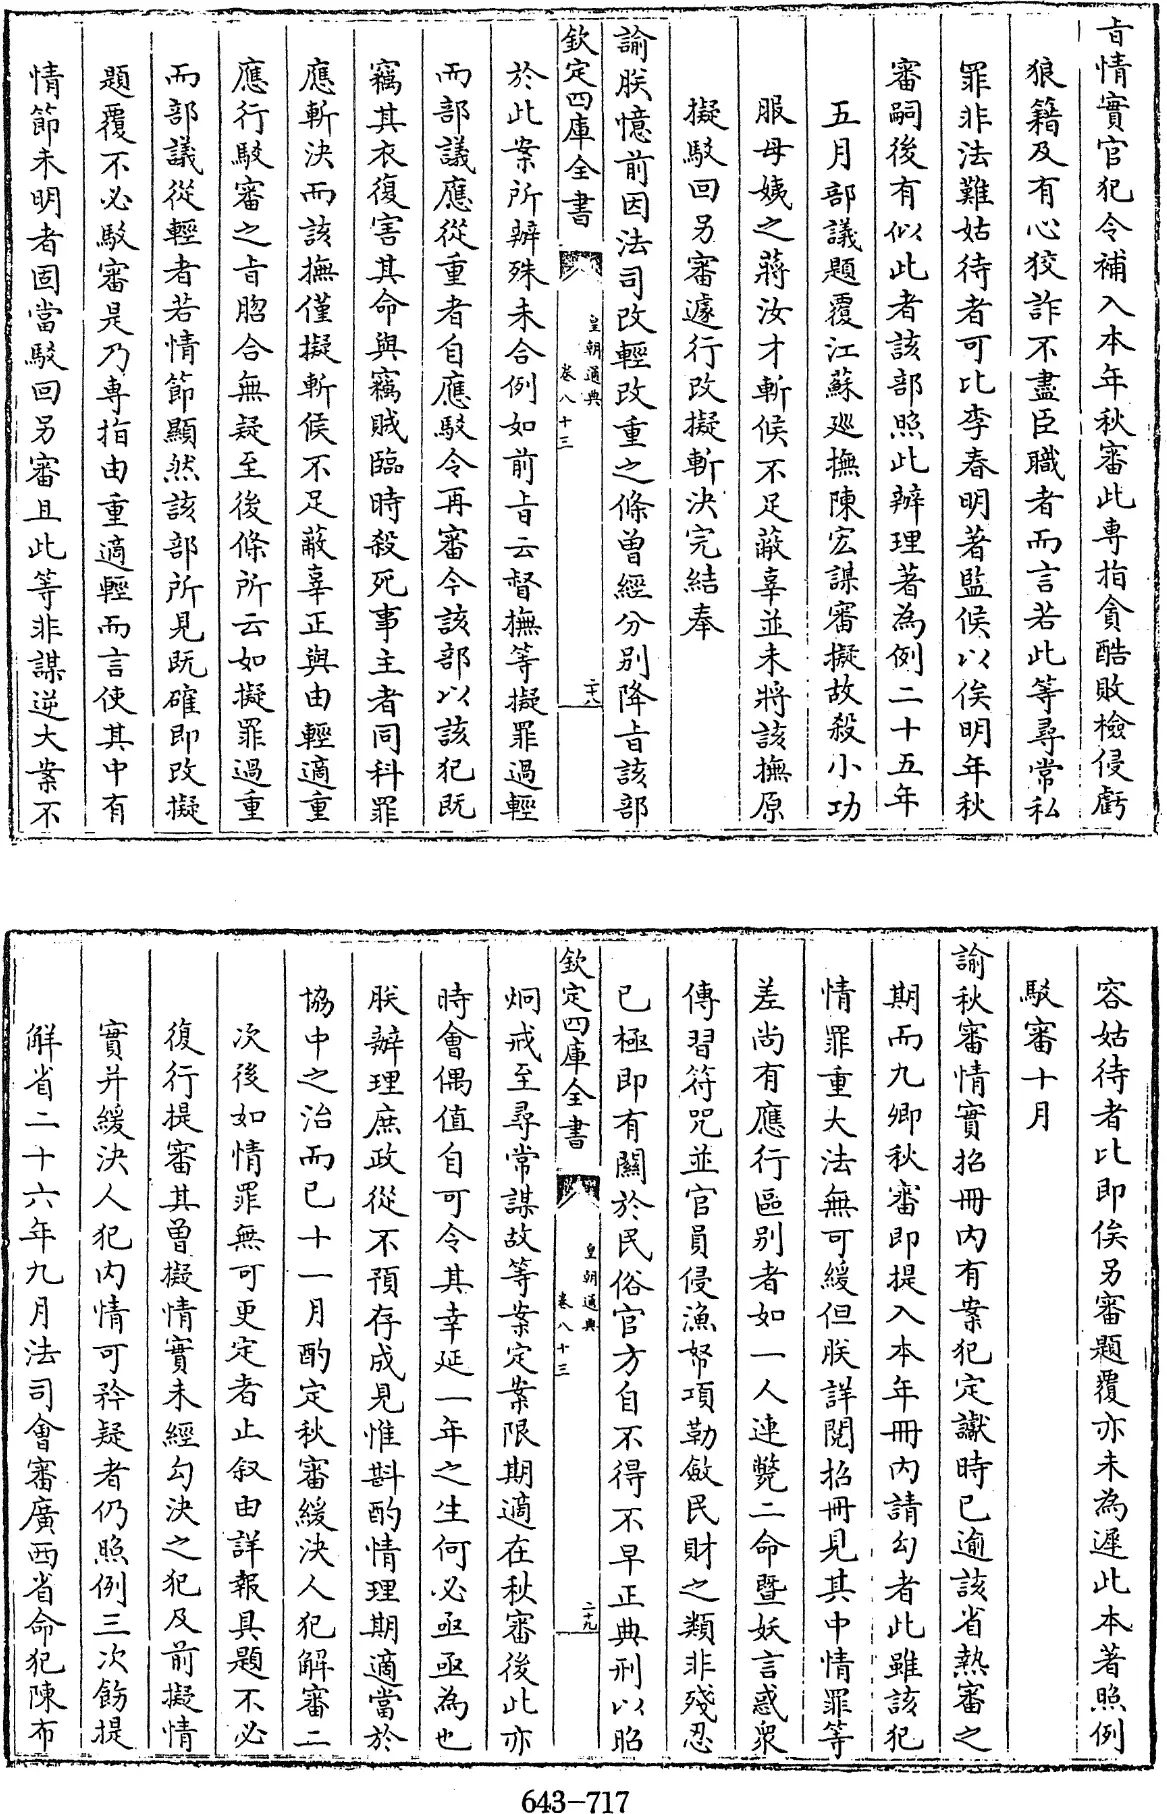 旨情實官犯令補入本年秋審此專指貪酷敗檢侵虧
狼籍及有心狡詐不盡臣職者而言若此等尋常私
罪非法難姑待者可比李春明著監候以俟明年秋
審嗣後有似此者該部照此辦理著為例二十五年
五月部議題覆江蘇巡撫陳宏謀審擬故殺小功
服母姨之蔣汝才斬候不足蔽辜並未將該撫原
擬駁回另審遽行改擬斬決完結奉
諭朕憶前因法司改輕改重之條曾經分別降旨該部
欽定四庫全書
皇朝通典
卷八十三
二十八
於此案所辦殊未合例如前旨云督撫等擬罪過輕
而部議應從重者自應駁令再審今該部以該犯既
竊其衣復害其命與竊賊臨時殺死事主者同科罪
應斬決而該撫僅擬斬候不足蔽辜正與由輕適重
應行駁審之旨脗合無疑至後條所云如擬罪過重
而部議從輕者若情節顯然該部所見既確即改擬
題覆不必駁審是乃專指由重適輕而言使其中有
情節未明者固當駁回另審且此等非謀逆大案不
容姑待者比即俟另審題覆亦未為遲此本著照例
駁審十月
諭秋審情實招冊内有案犯定讞時已逾該省熱審之
期而九卿秋審即提入本年冊内請勾者此雖該犯
情罪重大法無可緩但朕詳閱招冊見其中情罪等
差尚有應行區別者如一人連斃二命暨妖言惑衆
傳習符咒並官員侵漁帑項勒斂民財之類非殘忍
已極即有關於民俗官方自不得不早正典刑以昭
欽定四庫全書
皇朝通典
卷八十三
二十九
炯戒至尋常謀故等案定案限期適在秋審後此亦
時會偶值自可令其幸延一年之生何必亟亟為也
朕辦理庶政從不預存成見惟斟酌情理期適當於
協中之治而已十一月酌定秋審緩決人犯解審二
次後如情罪無可更定者止叙由詳報具題不必
復行提審其曾擬情實未經勾決之犯及前擬情
實并緩決人犯内情可矜疑者仍照例三次飭提
解省二十六年九月法司會審廣西省命犯陳布
643-717